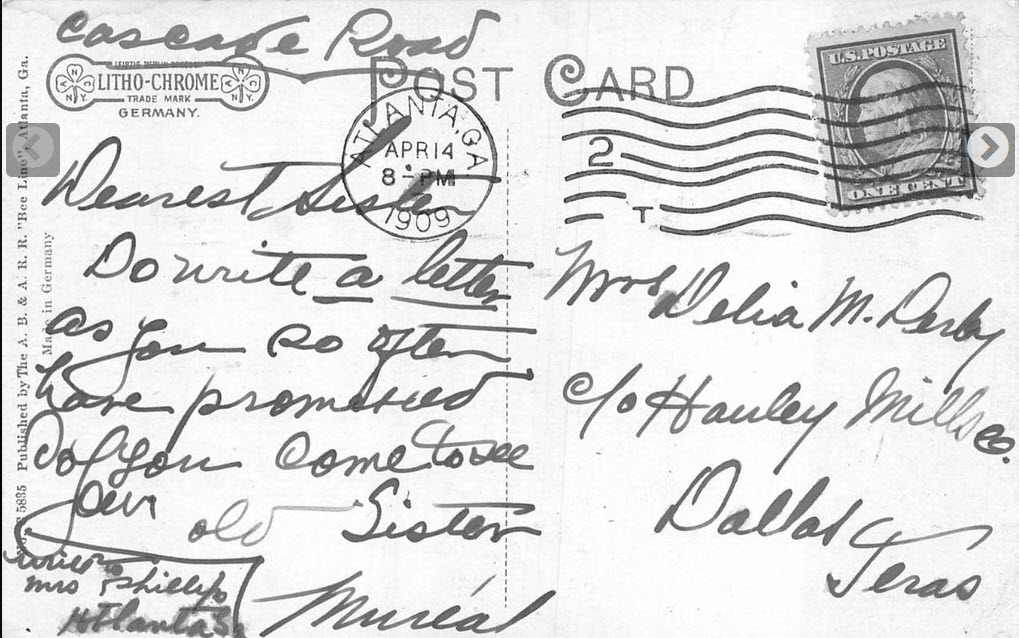 Cascade Road
LEIPZIG BERLIN DRESDEN
LITHO-CHROME
TRADE MARK
GERMANY.
N A C N.Y.
N A C N.Y.
POST CARD
ATLANTA, GA.
APR 14
8 - PM
1909
2
T
U.S. POSTAGE
ONE CENT
Dearest Sister
Do write a letter
as you so often
have promised
Do you come to see
our old Sister
Mureal
write
Mrs Phillips
Atlanta
Mrs Delia M. Derby
c/o Hauley Mills co.
Dallas
Texas
5835 Published by The A. B. & A. R. R. "Bee Line", Atlanta, Ga.
Made in Germany